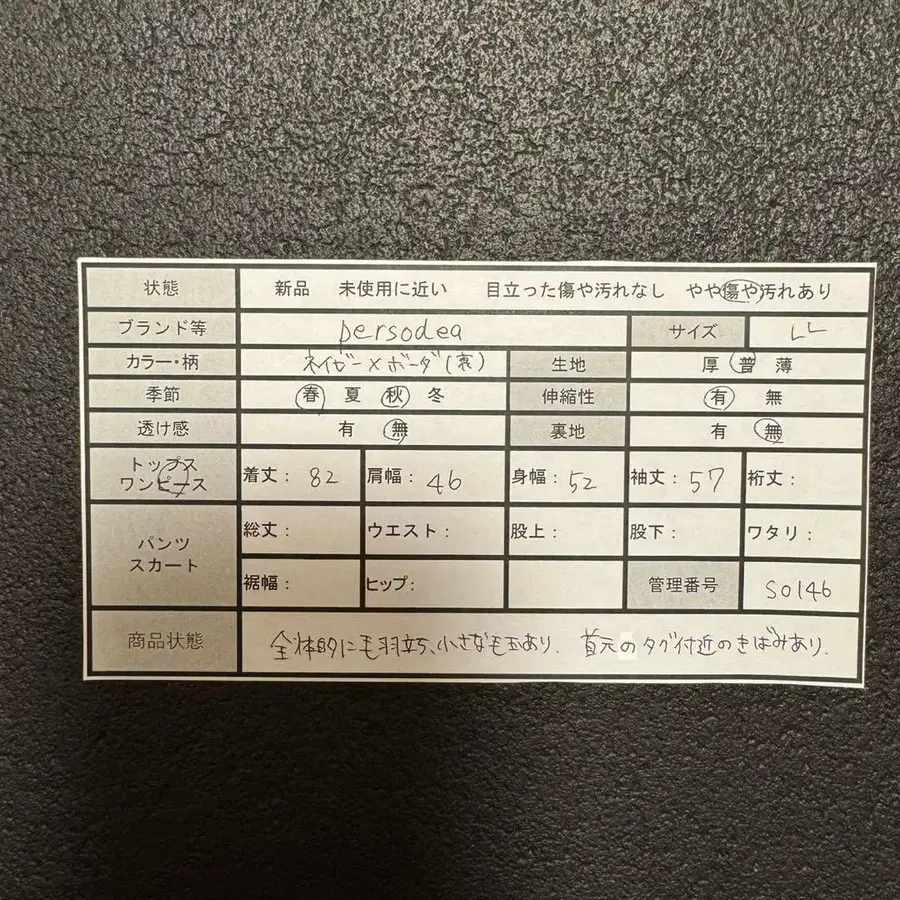 状態 新品 未使用に近い 目立った傷や汚れなし やや傷や汚れあり
ブランド等 persodea サイズ LL
カラー・柄 ネイビー×ボーダー(裏) 生地 厚 普 薄
季節 春 夏 秋 冬 伸縮性 有 無
透け感 有 無 裏地 有 無
トップス
ワンピース
着丈: 82 肩幅: 46 身幅: 52 袖丈: 57 裄丈:
パンツ
スカート
総丈: ウエスト: 股上: 股下: ワタリ:
裾幅: ヒップ: 管理番号 S0146
商品状態 全体的に毛羽立ち、小さな毛玉あり. 首元のタグ付近のきばみあり.